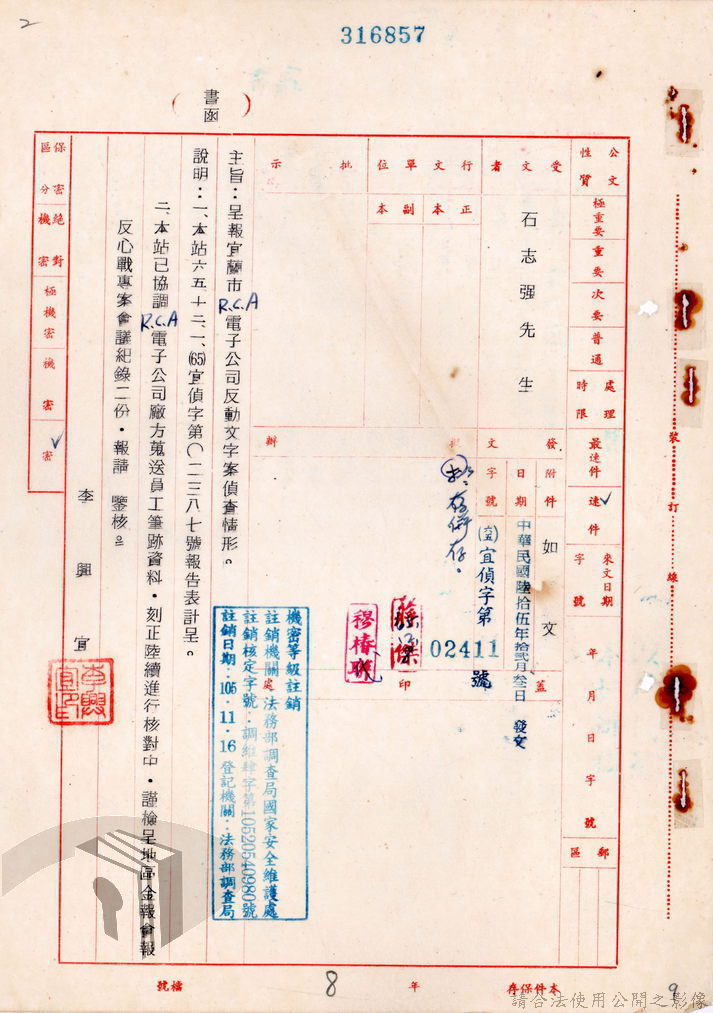 2
316857
(書函)
公文性質
極重要
重要
次要
普通
處理時限
最速件
速件
✓
來文日期字號
年月日字號
郵區
受文者
石志强先生
發文
附件
如文
日期
中華民國陸拾伍年拾貳月叁日 發文
字號
(65)宜偵字第02411號
蓋印
行文單位
正本
副本
批示
擬辦
存併存。
穆椿联
主旨：呈報宜蘭市R.C.A電子公司反動文字案偵查情形。
說明：一、本站六五、十二、一、(65)宜偵字第〇二三八七號報告表計呈。
二、本站已協調R.C.A電子公司廠方蒐送員工筆跡資料，刻正陸續進行核對中，謹檢呈地區金報會報
反心戰專案會議紀錄二份，報請 鑒核。
李興宜
保密區分
絕對機密
極機密
機密
密
✓
機密等級註銷
註銷機關：法務部調查局國家安全維護處
註銷核定字號：調維肆字第10520540980號
註銷日期：105.11.16 登記機關：法務部調查局
裝訂線
檔號
8年
本件保存
9
請合法使用公開之影像